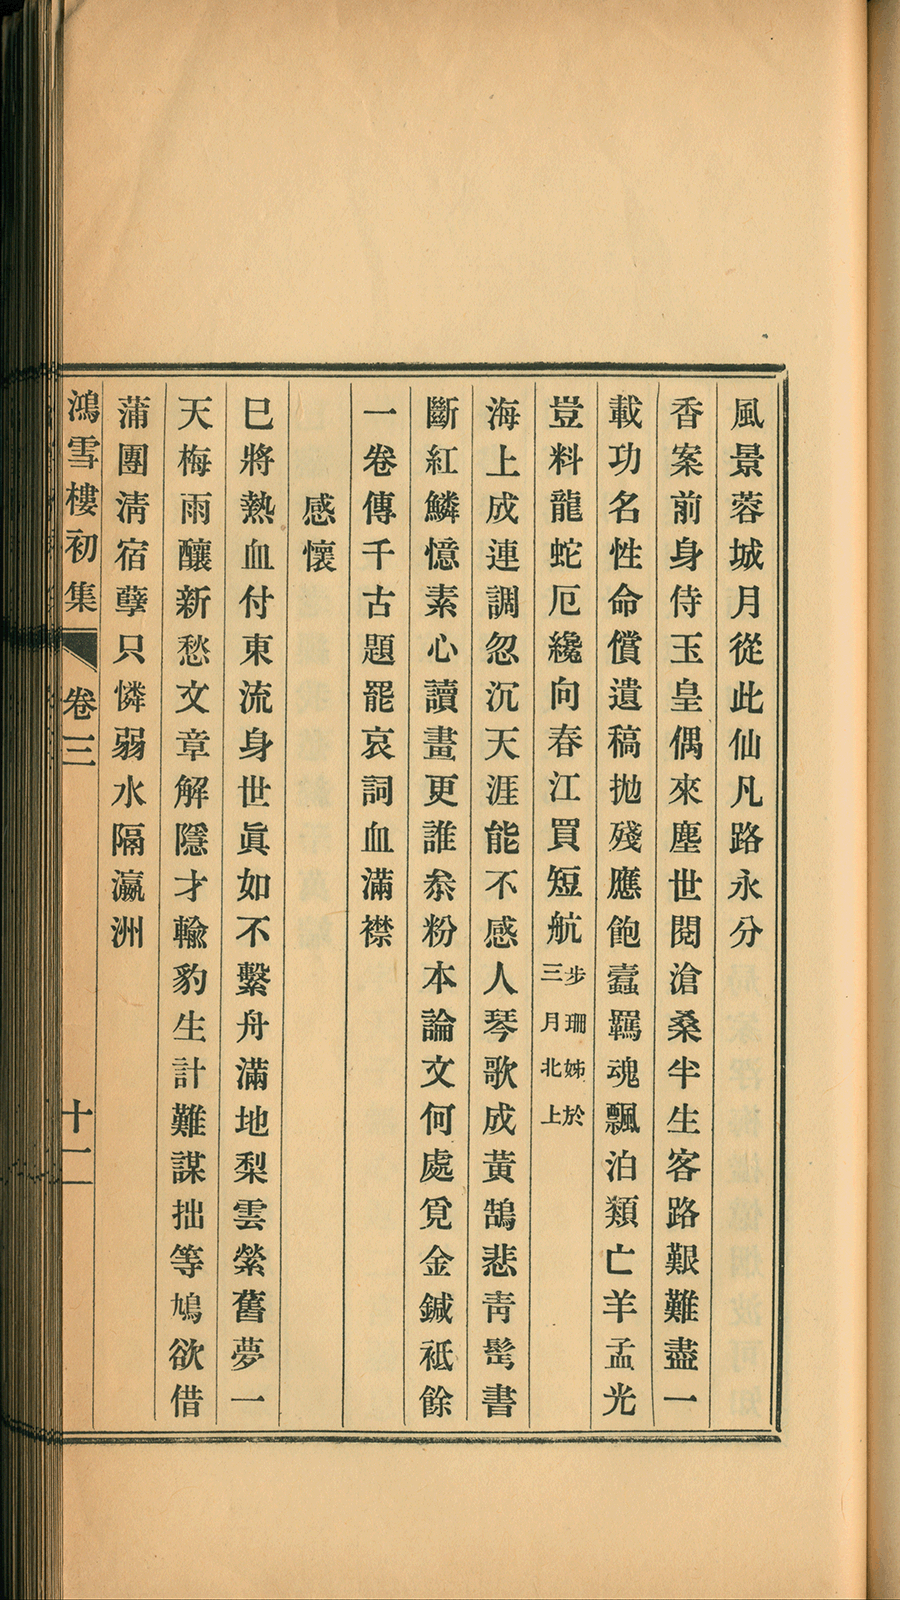 風景蓉城月從此仙凡路永分
香案前身侍玉皇偶來塵世閱滄桑半生客路艱難盡一
載功名性命償遺稿拋殘應飽蠹羈魂飄泊類亡羊孟光
豈料龍蛇厄纔向春江買短航步珊姊於三月北上
海上成連調忽沉天涯能不感人琴歌成黃鵠悲靑髩書
斷紅鱗憶素心讀畫更誰叅粉本論文何處覓金鍼祇餘
一卷傳千古題罷哀詞血滿襟
感懷
巳將熱血付東流身世眞如不繫舟滿地梨雲縈舊夢一
天梅雨釀新愁文章解隱才輸豹生計難謀拙等鳩欲借
蒲團淸宿孽只憐弱水隔瀛洲
鴻雪樓初集
卷三
十二